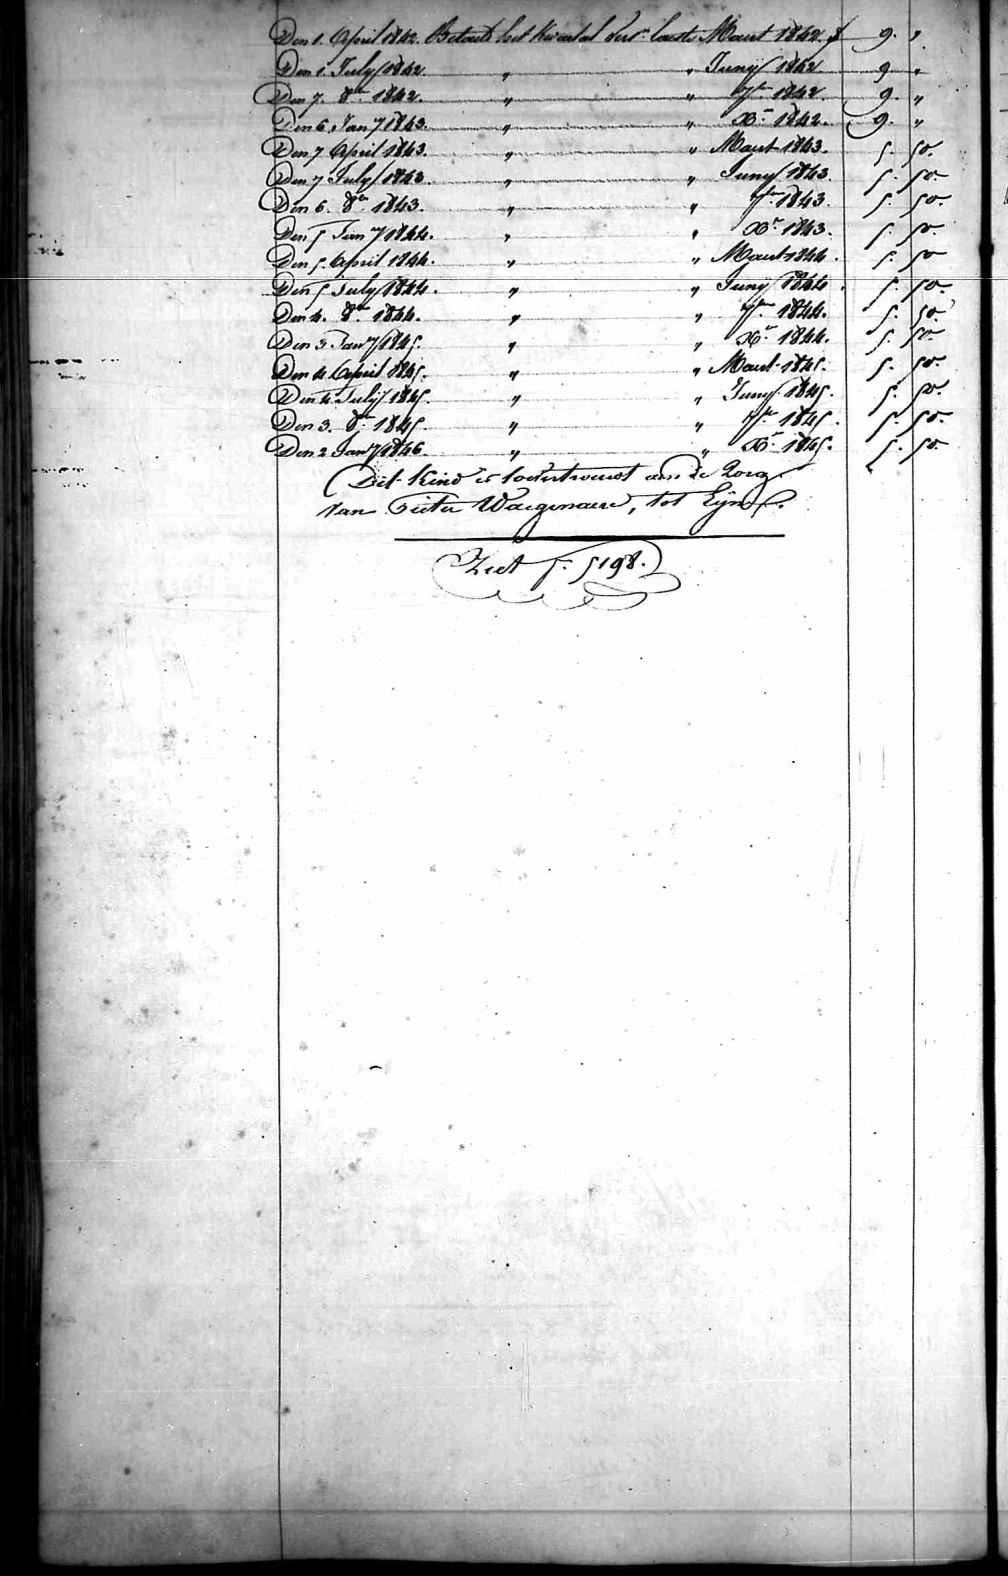 Den 1. April 1842. Betaald het kwartal vers.n laaste Maart 1842. f 9. "
Den 1. July 1842. " " Juny 1842 9 "
Den 7. 8.er 1842. " " 7.er 1842. 9. "
Den 6. Jany 1843. " " X.r 1842. 9. "
Den 7 April 1843. " " Maart 1843. 5. 50.
Den 7 July 1843. " " Juny 1843. 5. 50
Den 6. 8.er 1843. " " 7.er 1843. 5. 50.
Den 5 Jany 1844. " " X.r 1843. 5. 50.
Den 5. April 1844. " " Maart 1844. 5. 50
Den 5 July 1844. " " Juny 1844. 5. 50.
Den 4. 8.er 1844. " " 7.er 1844. 5. 50.
Den 3 Jany 1845. " " X.r 1844. 5. 50.
Den 4 April 1845. " " Maart 1845. 5. 50.
Den 4. July 1845. " " Juny 1845. 5. 50.
Den 3. 8.er 1845. " " 7.er 1845. 5. 50.
Den 2 Jany 1846. " " X.r 1845. 5. 50.
Dit kind is toevertrouwt aen de Zorg
van Pieter Waegenaere, tot Eyne.
Ziet f. 5198.